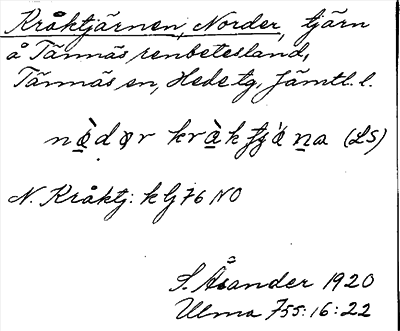 Kråktjärnen, Norder, tjärn
å Tännäs renbetesland,
Tännäs sn, Hede tg, Jämtl. l.
(LS)
N. Kråktj: k bj 76 NO
S. Åsander 1920
Ulma 755:16:22